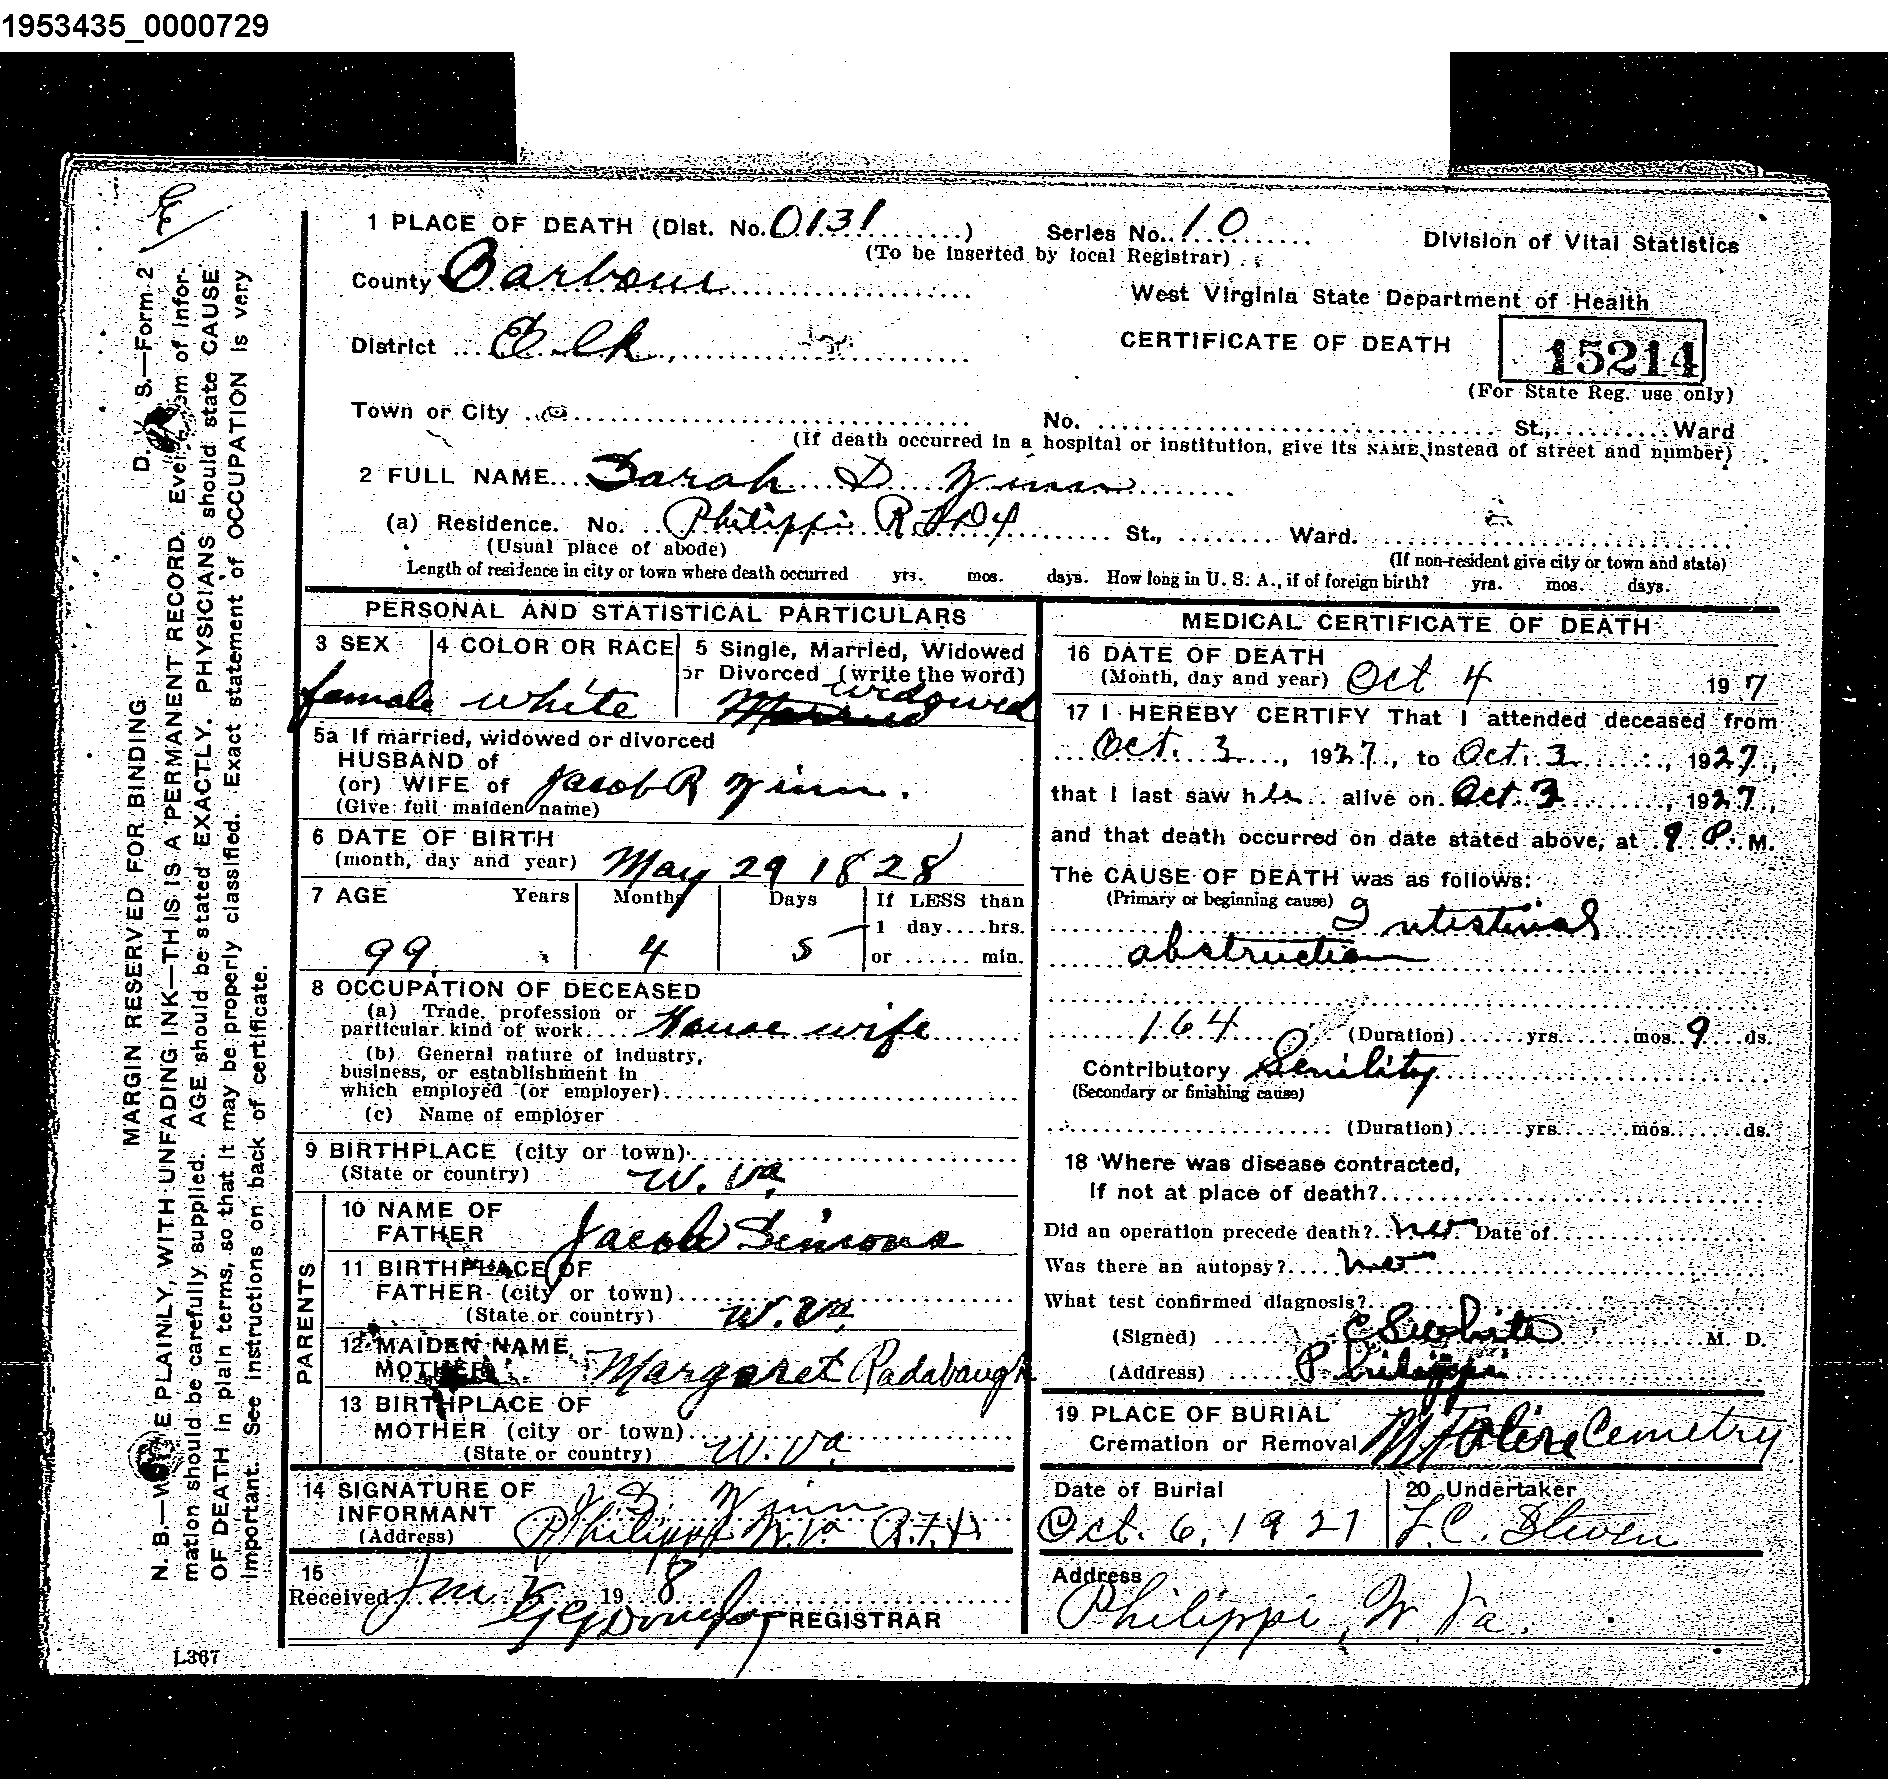 1953435_0000729
1 PLACE OF DEATH (Dist. No. 0131) Series No. 10
(To be inserted by local Registrar)
Division of Vital Statistics
County Barbour
West Virginia State Department of Health
District Elk
CERTIFICATE OF DEATH 15214
(For State Reg. use only)
Town or City
No. St., Ward
(If death occurred in a hospital or institution, give its NAME instead of street and number)
2 FULL NAME Sarah D
(a) Residence. No. Philippi R F D 4 St., Ward.
(Usual place of abode) (If non-resident give city or town and state)
Length of residence in city or town where death occurred yrs. mos. days. How long in U. S. A., if of foreign birth? yrs. mos. days.
PERSONAL AND STATISTICAL PARTICULARS
3 SEX
female
4 COLOR OR RACE
white
5 Single, Married, Widowed
or Divorced (write the word)
widowed
Married
5a If married, widowed or divorced
HUSBAND of
(or) WIFE of Jacob R
(Give full maiden name)
6 DATE OF BIRTH
(month, day and year) May 29 1828
7 AGE Years Months Days If LESS than
1 day....hrs.
99 4 5 or ...... min.
8 OCCUPATION OF DECEASED
(a) Trade, profession or
particular kind of work House wife
(b) General nature of industry,
business, or establishment in
which employed (or employer)
(c) Name of employer
9 BIRTHPLACE (city or town)
(State or country) W. Va.
PARENTS
10 NAME OF
FATHER Jacob Simons
11 BIRTHPLACE OF
FATHER (city or town)
(State or country) W. Va.
12 MAIDEN NAME
MOTHER Margaret Radabaugh
13 BIRTHPLACE OF
MOTHER (city or town)
(State or country) W. Va.
14 SIGNATURE OF
INFORMANT
(Address) Philippi W. Va
15
Received 19 8
REGISTRAR
MEDICAL CERTIFICATE OF DEATH
16 DATE OF DEATH
(Month, day and year) Oct 4 19 7
17 I HEREBY CERTIFY That I attended deceased from
Oct. 3, 1927, to Oct. 3, 1927,
that I last saw her alive on Oct. 3, 1927,
and that death occurred on date stated above, at 9 P. M.
The CAUSE OF DEATH was as follows:
(Primary or beginning cause) Intestinal
abstruction
164 (Duration) yrs. mos. 9 ds.
Contributory Senility
(Secondary or finishing cause)
(Duration) yrs. mos. ds.
18 Where was disease contracted,
If not at place of death?
Did an operation precede death? no Date of
Was there an autopsy? no
What test confirmed diagnosis?
(Signed) White M. D.
(Address) Philippi
19 PLACE OF BURIAL
Cremation or Removal Mt Olive Cemetry
Date of Burial
Oct. 6, 1927
20 Undertaker
Address
Philippi, W. Va.
D. V. S.—Form 2
MARGIN RESERVED FOR BINDING
N. B.—WRITE PLAINLY, WITH UNFADING INK—THIS IS A PERMANENT RECORD. Every item of infor-
mation should be carefully supplied. AGE should be stated EXACTLY. PHYSICIANS should state CAUSE
OF DEATH in plain terms, so that it may be properly classified. Exact statement of OCCUPATION is very
important. See instructions on back of certificate.
L367